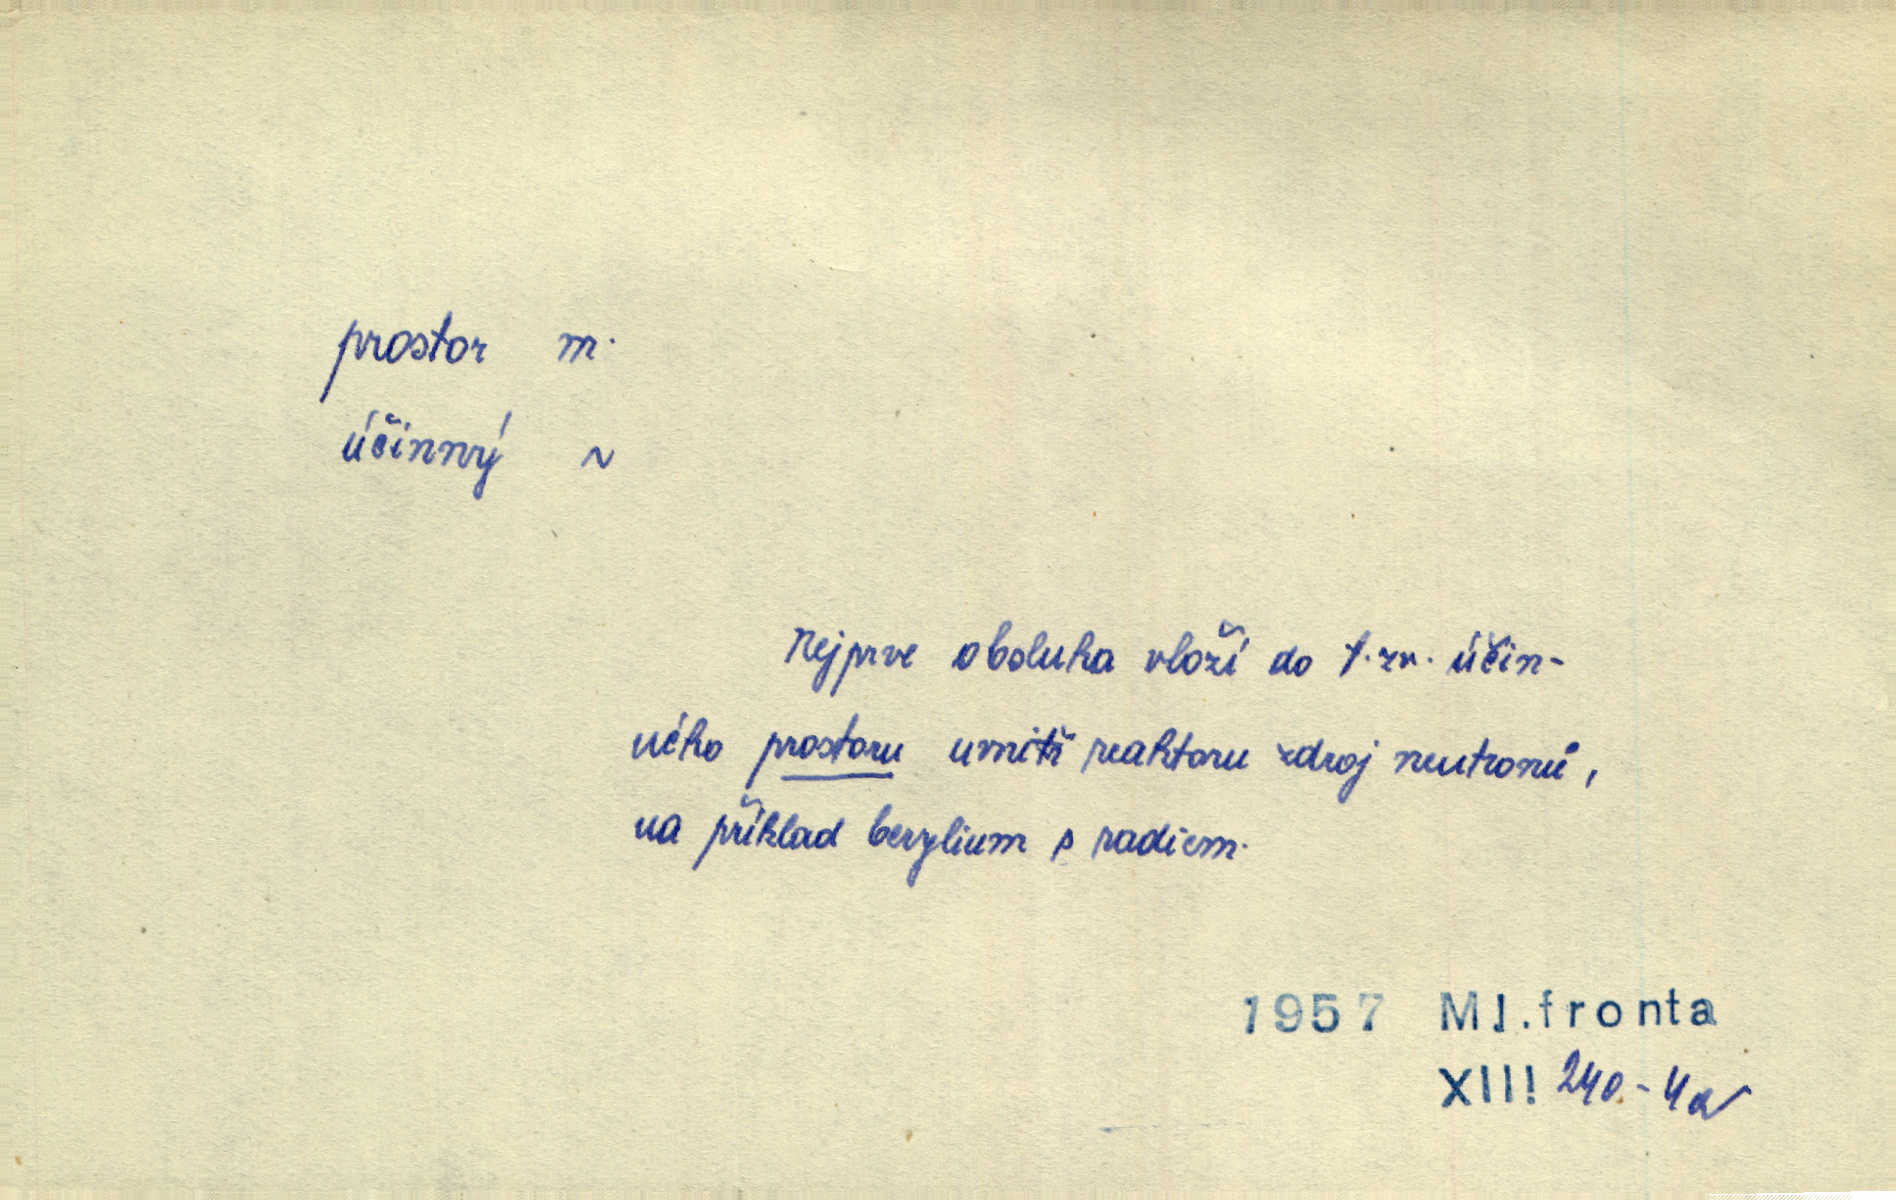 prostor m.
účinný ~
Nejprve obsluha vloží do t. zv. účin-
ného prostoru uvnitř reaktoru zdroj neutronů,
na příklad berylium s radiem.
1957 Ml.fronta
XIII 240 - 4a